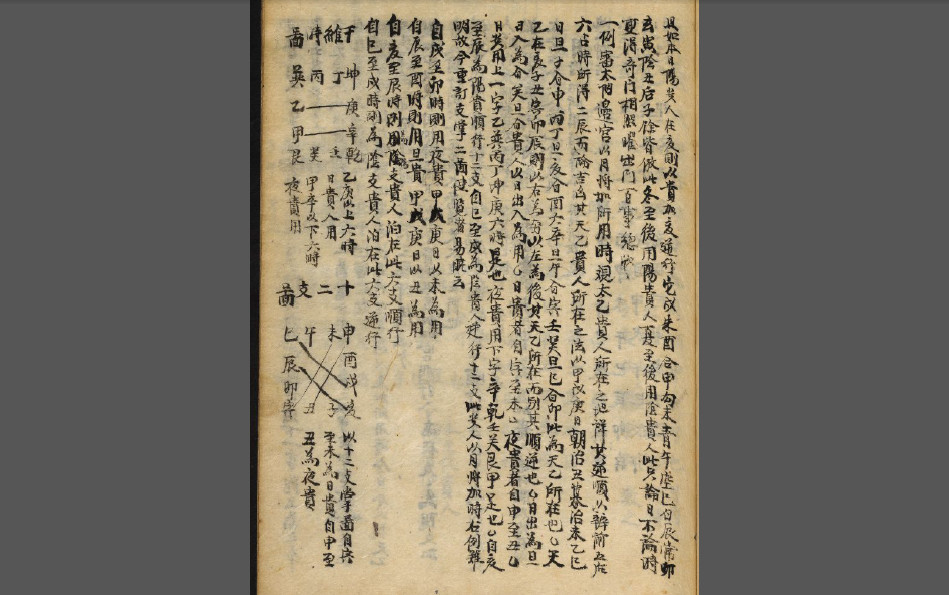 具如本日陽貴人在亥則以貴加亥逆行它以朱酉合申勾未青午空巳白辰常卯
玄寅陰丑后子餘皆倣此冬至後用陽貴人夏至後用陰貴人此只論日不論時
更得奇門相照曜出門百事
一例審太陽過宮以月將加所用時視太乙貴人所在之地詳其逆順以辨前五
六占時所得二辰而論吉凶其天乙貴人所在之法以甲戊庚日朝治丑暮治未乙己
日旦子合申丙丁日亥合酉六辛旦午合寅壬癸旦巳合卯此為天乙所在也天
乙在亥子丑寅卯辰則以右為前以左為後其天乙所在而別其順逆也日出為旦
日入為合癸日合貴人以日出入為用日貴者自寅至未夜貴者自申至丑
日貴用上一字乙巽丙丁坤庚六時是也夜貴用下字辛乾壬癸艮甲是也自亥
至辰為陽貴順行十二支自巳至戌為陰貴人逆行十二支此貴人以月將加時右例難
明故今重訂支掌二圖使覽者易曉云
自戌至卯時則用夜貴甲戊庚日以未為用
自辰至酉時則用旦貴甲戊庚日以丑為用
自亥至辰時則為陽支貴人泊在此六支順行
自巳至戌時則為陰支貴人泊在此六支逆行
干 坤 庚 辛 乾 乙庚以上六時
維 丁 壬 日貴人用
時 丙 癸 甲辛以下六時
圖 巽 乙 甲 艮 夜貴用
十二支圖
申 酉 戌 亥 以十二支掌圖自寅
未 子 至未為日貴自申至
午 丑 丑為夜貴
巳 辰 卯 寅